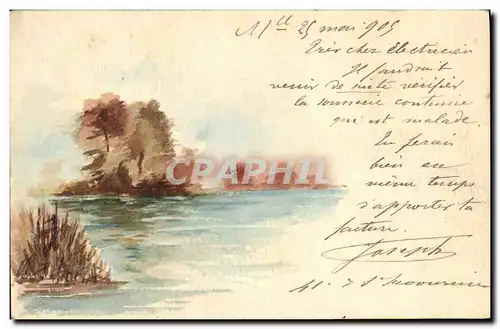 Mlle 25 mai 905
Très cher électricien
Il faudrait
venir de suite vérifier
la sonnerie continue
qui est malade.
Tu ferais
bien en
même temps
d'apporter ta
facture.
Joseph
41.
CARPHIL